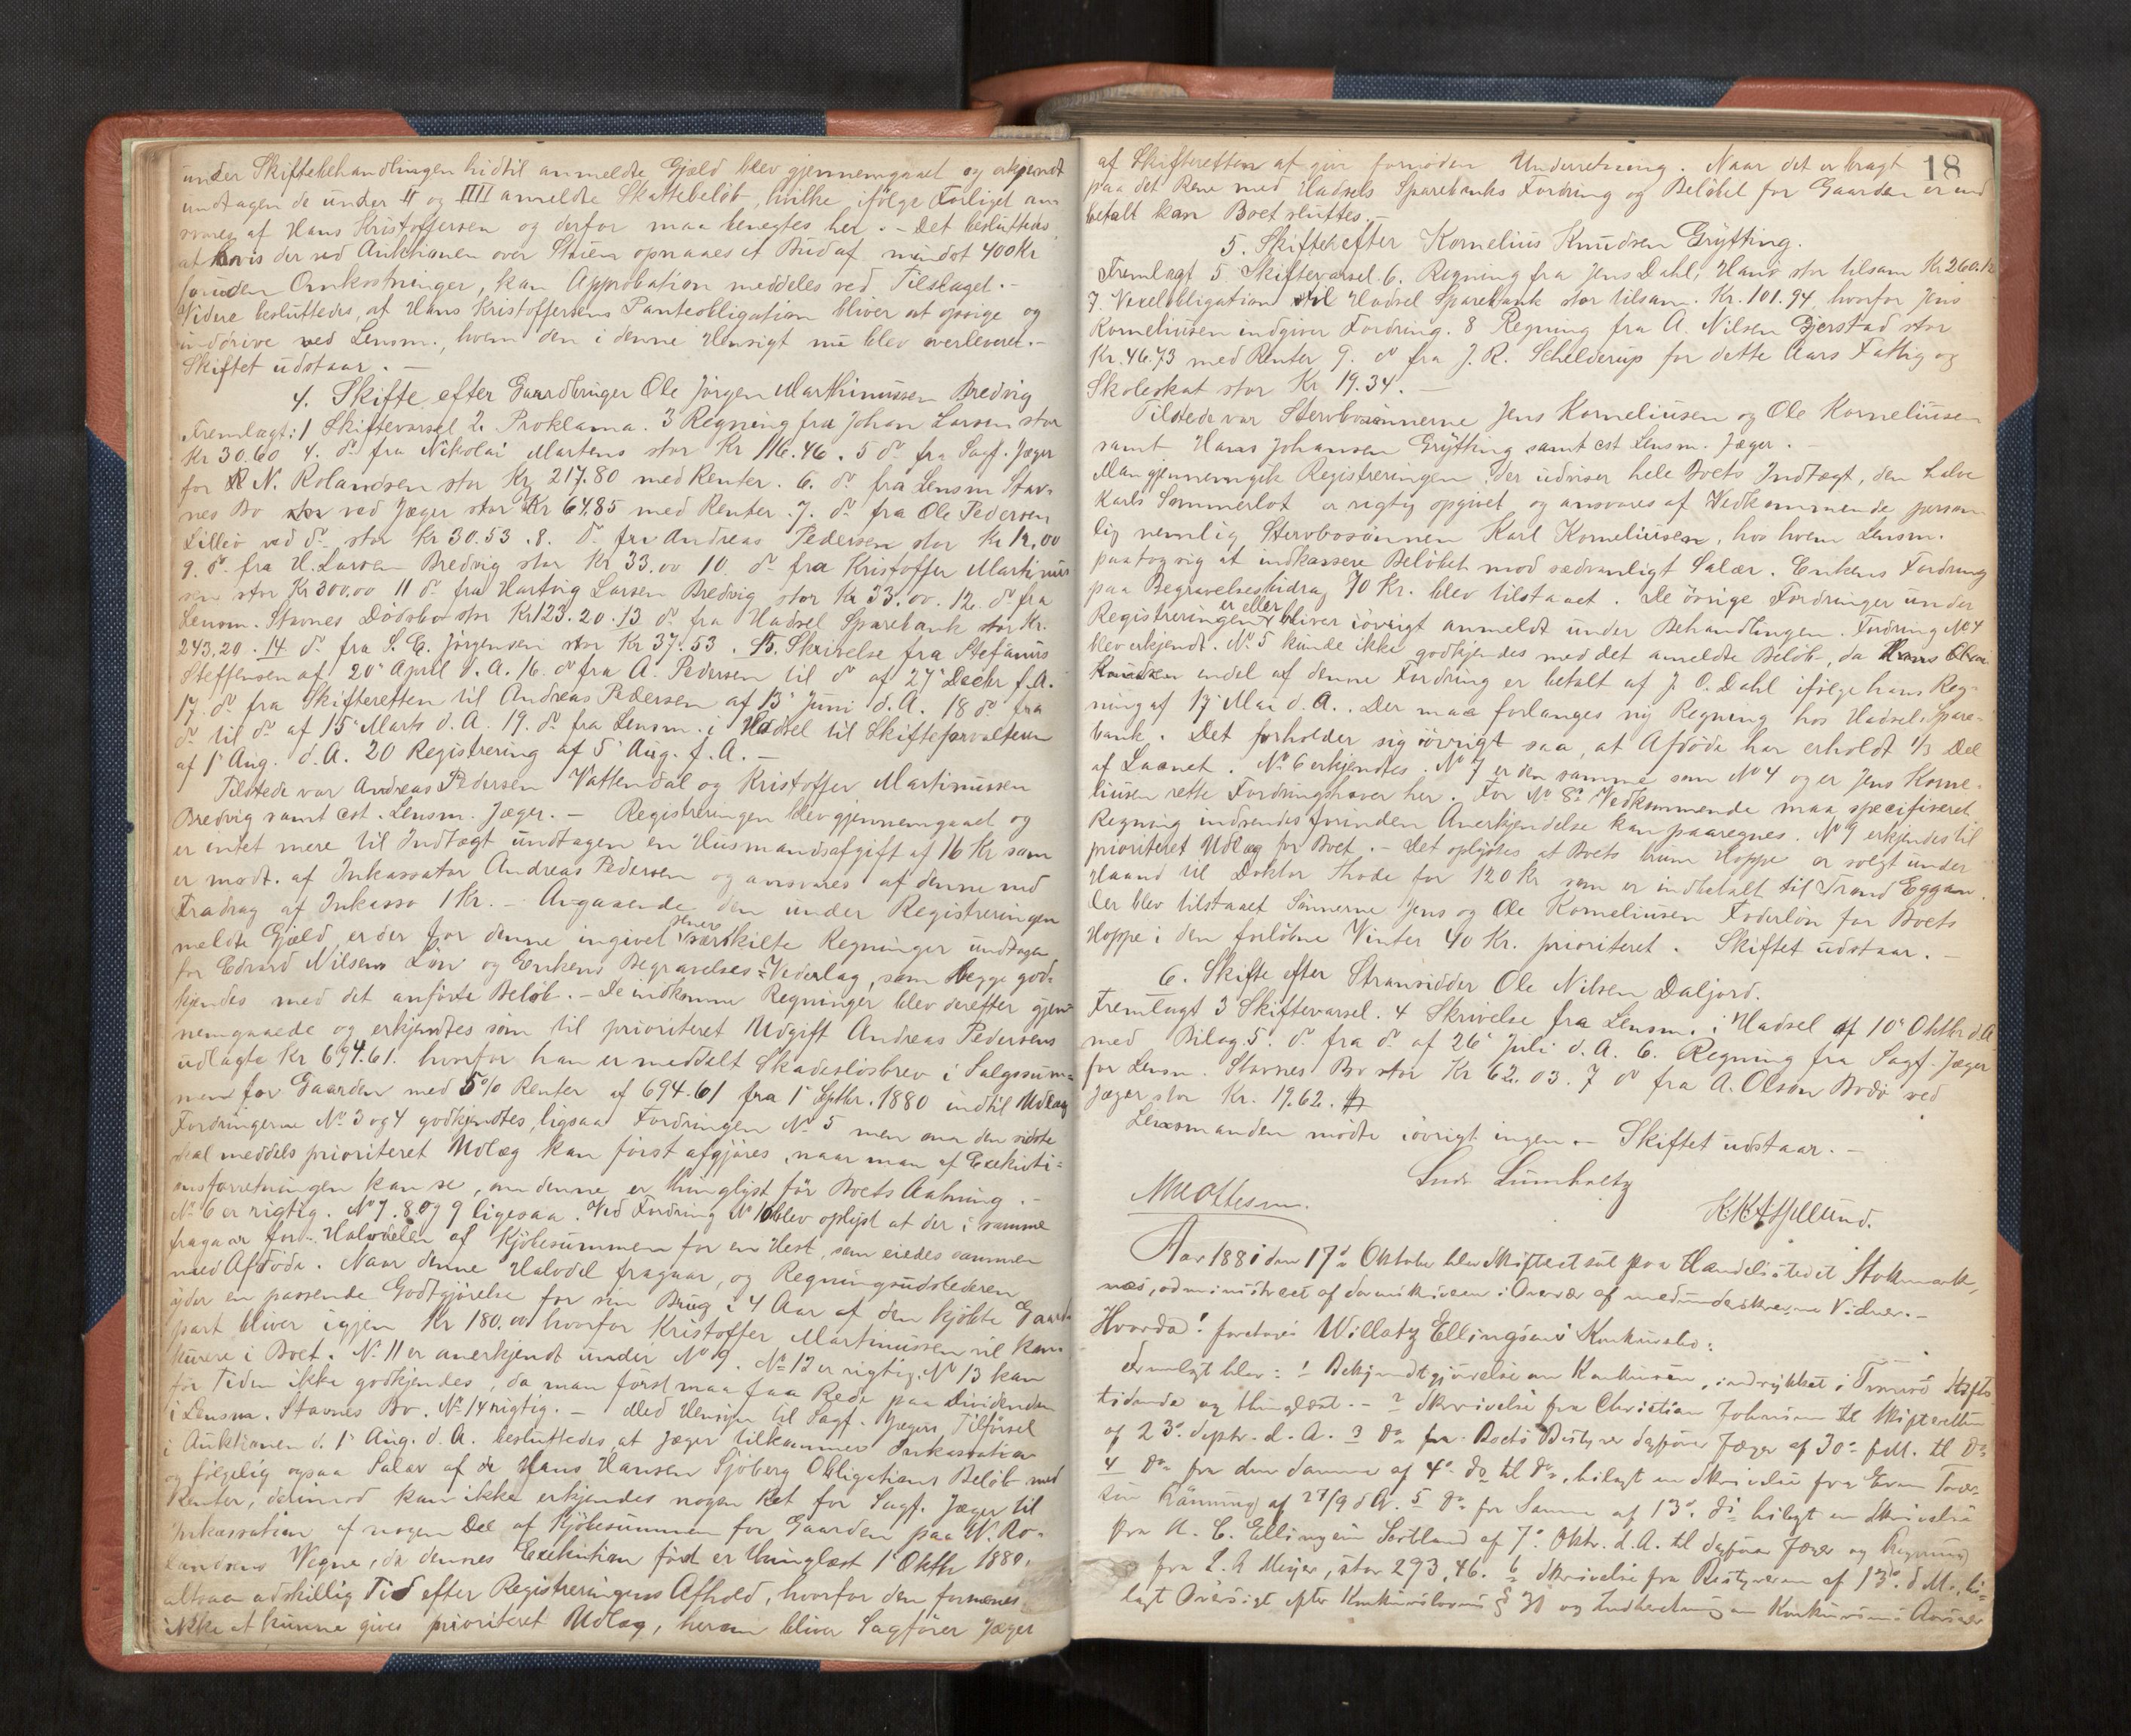 under Skiftebehandlingen hidtil anmeldte Gjæld blev gjennemgaaet og erkjendt
undtagen de under II og IIII anmeldte Skattebeløb, hvilke ifølge Forliget an-
svares af Hans Kristoffersen og derfor maa benegtes her. - Det besluttedes
at hvis der ved Auktionen over Støien opnaaes et Bud af mindst 400 Kr
foruden Omkostninger, kan Approbation meddeles ved Tilslaget. -
Videre besluttedes, at Hans Kristoffersens Panteobligation bliver at opsige og
inddrive ved Lensm., hvem den i denne Hensigt nu blev overleveret. -
Skiftet udstaar. -
4. Skifte efter Gaardbruger Ole Jørgen Marthinussen Bredvig
Fremlagt: 1 Skiftevarsel 2. Proklama. 3 Regning fra Johan Larsen stor
Kr 30.60 4. do fra Nikolai Martens stor Kr 116.46. 5 do fra Sagf. Jæger
for N. Rolandsen stor Kr 217.80 med Renter. 6. do fra Lensm Stav-
nes Bo ved Jæger stor Kr 64.85 med Renter. 7. do fra Ole Pedersen
Lilleø ved do stor Kr 30.53. 8. do fra Andreas Pedersen stor Kr 12,00
9. do fra H. Larsen Bredvig stor Kr 33.00 10. do fra Kristoffer Martinus-
sen stor Kr 300.00 11 do fra Hartvig Larsen Bredvig stor Kr 33.00. 12. do fra
Lensm. Stavnes Dødsbo stor Kr 123.20. 13 do fra Hadsel Sparebank stor Kr.
243.20. 14 do fra S. C. Jørgensen stor Kr 37.53. 15. Skrivelse fra Stefanus
Steffensen af 20 April d. A. 16. do fra A. Pedersen til do af 27 Decbr f. A.
17. do fra Skifteretten til Andreas Pedersen af 13 Juni d. A. 18 do fra
do til do af 15 Marts d. A. 19. do fra Lensm. i Hadsel til Skifteforvalteren
af 1 Aug. d. A. 20 Registrering af 5 Aug. f. A. -
Tilstede var Andreas Pedersen Vattendal og Kristoffer Martinussen
Bredvig samt cst. Lensm. Jæger. - Registreringen blev gjennemgaaet og
er intet mere til Indtægt undtagen en Husmandsafgift af 16 Kr som
er modt. af Inkassator Andreas Pedersen og ansvares af denne med
Fradrag af Inkasso 1 Kr. - Angaaende den under Registreringen
meldte Gjæld, er der for denne ingivet senere særskilte Regninger undtagen
for Edvard Nilsens Løn og Enkens Begravelses-Vederlag, som begge god-
kjendes med det anførte Beløb. - De indkomne Regninger blev derefter gjen-
nemgaaede og erkjendtes som til prioriteret Udgift Andreas Pedersens
udlagte Kr 694.61. hvorfor han er meddelt Skadesløsbrev i Salgssum-
men for Gaarden med 5% Renter af 694.61 fra 1 Septbr. 1880 indtil Udlæg
Fordringerne No 3 og 4 godkjendtes, ligsaa Fordringen No 5 men om den sidste
skal meddels prioriteret Udlæg kan først afgjøres, naar man af Exekuti-
onsforretningen kan se, om denne er thinglyst før Boets Aabning. -
No 6 er rigtig. No 7. 8 og 9 ligesaa. Ved Fordring No 10 blev oplyst at der i samme
fragaar for Halvdelen af Kjøbesummen for en Hest, som eiedes sammen
med Afdøde. Naar denne Halvdel fragaar, og Regningsudstederen
yder en passende Godtgjørelse for sin Brug i 4 Aar af den kjøbte Gaard-
part bliver igjen Kr 180.00 hvorfor Kristoffer Martinussen vil kon-
kurere i Boet. No 11 er anerkjendt under No 9. No 12 er rigtig. No 13 kan
for Tiden ikke godkjendes, da man først maa faa Rede paa Dividenden
i Lensm. Stavnes Bo. No 14 rigtig. - Med Hensyn til Sagf. Jægers Tilførsel
i Auktionen d. 1 Aug. d. A. besluttedes, at Jæger tilkommer Inkassation
og følgelig ogsaa Salær af Hans Hansen Sjøberg Obligations Beløb med
Renter, derimod kan ikke erkjendes nogen Ret for Sagf. Jæger til
Inkassation af nogen Del af Kjøbesummen for Gaarden paa N. Ro-
landsens Vegne, da dennes Exekution først er thinglæst 1 Oktbr 1880.
altsaa adskillig Tid efter Registreringens Afhold, hvorfor den formenes
ikke at kunne gives prioriteret Udlæg, herom bliver Sagfører Jæger
18
af Skifteretten at give fornøden Underretning. Naar det er bragt
paa det Rene med Hadsels Sparebanks Fordring og Beløbet for Gaarden er ind
betalt kan Boet sluttes. -
5. Skiftet efter Kornelius Knudsen Grytting.
Fremlagt 5 Skiftevarsel 6. Regning fra Jens Dahl, Hanø stor tilsam Kr 260.12
7. Vexelobligation til Hadsel Sparebank stor tilsam. Kr. 101.94, hvorfor Jens
Korneliusen indgiver Fordring. 8 Regning fra A. Nilsen Gjerstad stor
Kr. 46.73 med Renter 9. do fra J. R. Schelderup for dette Aars Fattig og
Skoleskat stor Kr 19.34. -
Tilstede var Stervbosønnerne Jens Korneliusen og Ole Korneliusen
samt Hans Johansen Grytting samt cst Lensm. Jæger. -
Man gjennemgik Registreringen, der udviser hele Boets Indtægt, den halve
Karls Sommerlot er rigtig opgivet og ansvares af Vedkommende person-
lig nemlig Stervbosønnen Karl Korneliusen, hos hvem Lensm.
paatog sig at indkassere Beløbet mod sædvanligt Salær. Enkens Fordring
paa Begravelsesbidrag 70 Kr. blev tilstaaet. De øvrige Fordringer under
Registreringen er eller bliver iøvrigt anmeldt under Behandlingen. Fordring No 4
blev erkjendt. No 5 kunde ikke godkjendes med det anmeldte Beløb, da
endel af denne Fordring er betalt af J. O. Dahl ifølge hans Reg-
ning af 17 Mai d. A. Der maa forlanges ny Regning hos Hadsel Spare-
bank. Det forholder sig iøvrigt saa, at Afdøde har erholdt 1/3 Del
af Laanet. No 6 erkjendtes. No 7 er den samme som No 4 og er Jens Korne-
liusen rette Fordringshaver her. For No 8s Vedkommende maa specifiseret
Regning indsendes forinden Anerkjendelse kan paaregnes. No 9 erkjendes til
prioriteret Udlæg for Boet. - Det oplystes at Boets brune Hoppe er solgt under
Haand til Doktor Thode for 120 Kr som er indbetalt til Trond Eggan.
Der blev tilstaaet Sønnerne Jens og Ole Korneliusen Foderløn for Boets
Hoppe i den forløbne Vinter 40 Kr. prioriteret. Skiftet udstaar. -
6. Skifte efter Strandsidder Ole Nilsen Daljord.
Fremlagt 3 Skiftevarsel. 4 Skrivelse fra Lensm. i Hadsel af 10 Oktbr d. A
med Bilag. 5. do fra do af 26 Juli d. A. 6. Regning fra Sagf. Jæger
for Lensm. Stavnes Bo stor Kr 62.03. 7 do fra A. Olsen Bodø ved
Jæger stor Kr. 19.62.
Lensmanden mødte iøvrigt ingen. - Skiftet udstaar. -
Ludv Lumholtz
M Ottesen.
Aar 1881 den 17de Oktober blev Skifteret sat paa Handelsstedet Stokmark-
næs, administreret af Sorenskriveren i Overvær af medunderskrevne Vidner. -
Hvorda! foretoges Willatz Ellingsens Konkursbo:
Fremlagt blev: 1 Bekjendtgjørelse om Konkursen, indrykket i Tromsø Stifts
tidende og thinglæst. - 2 Skrivelse fra Christian Johnsen til Skifteretten
af 23de Septr. d. A. 3 do fra Boets Bestyrer Sagfører Jæger af 30 f. M. til do
4 do fra den samme af 4de ds til do, bilagt en Skrivelse fra Even
af 27/9 d A. 5 do fra Samme af 13de ds bilagt en Skrivelse
fra A. C. Ellingsen Sortland af 7de Oktr. d. A. til Sagfører Jæger og Regning
fra L. A Meyer, stor 293,46. 6 Skrivelse fra Bestyreren af 13de d M., bi-
lagt Oversigt efter Konkurslovens § 30 og Indberetning om Konkursens Aarsager